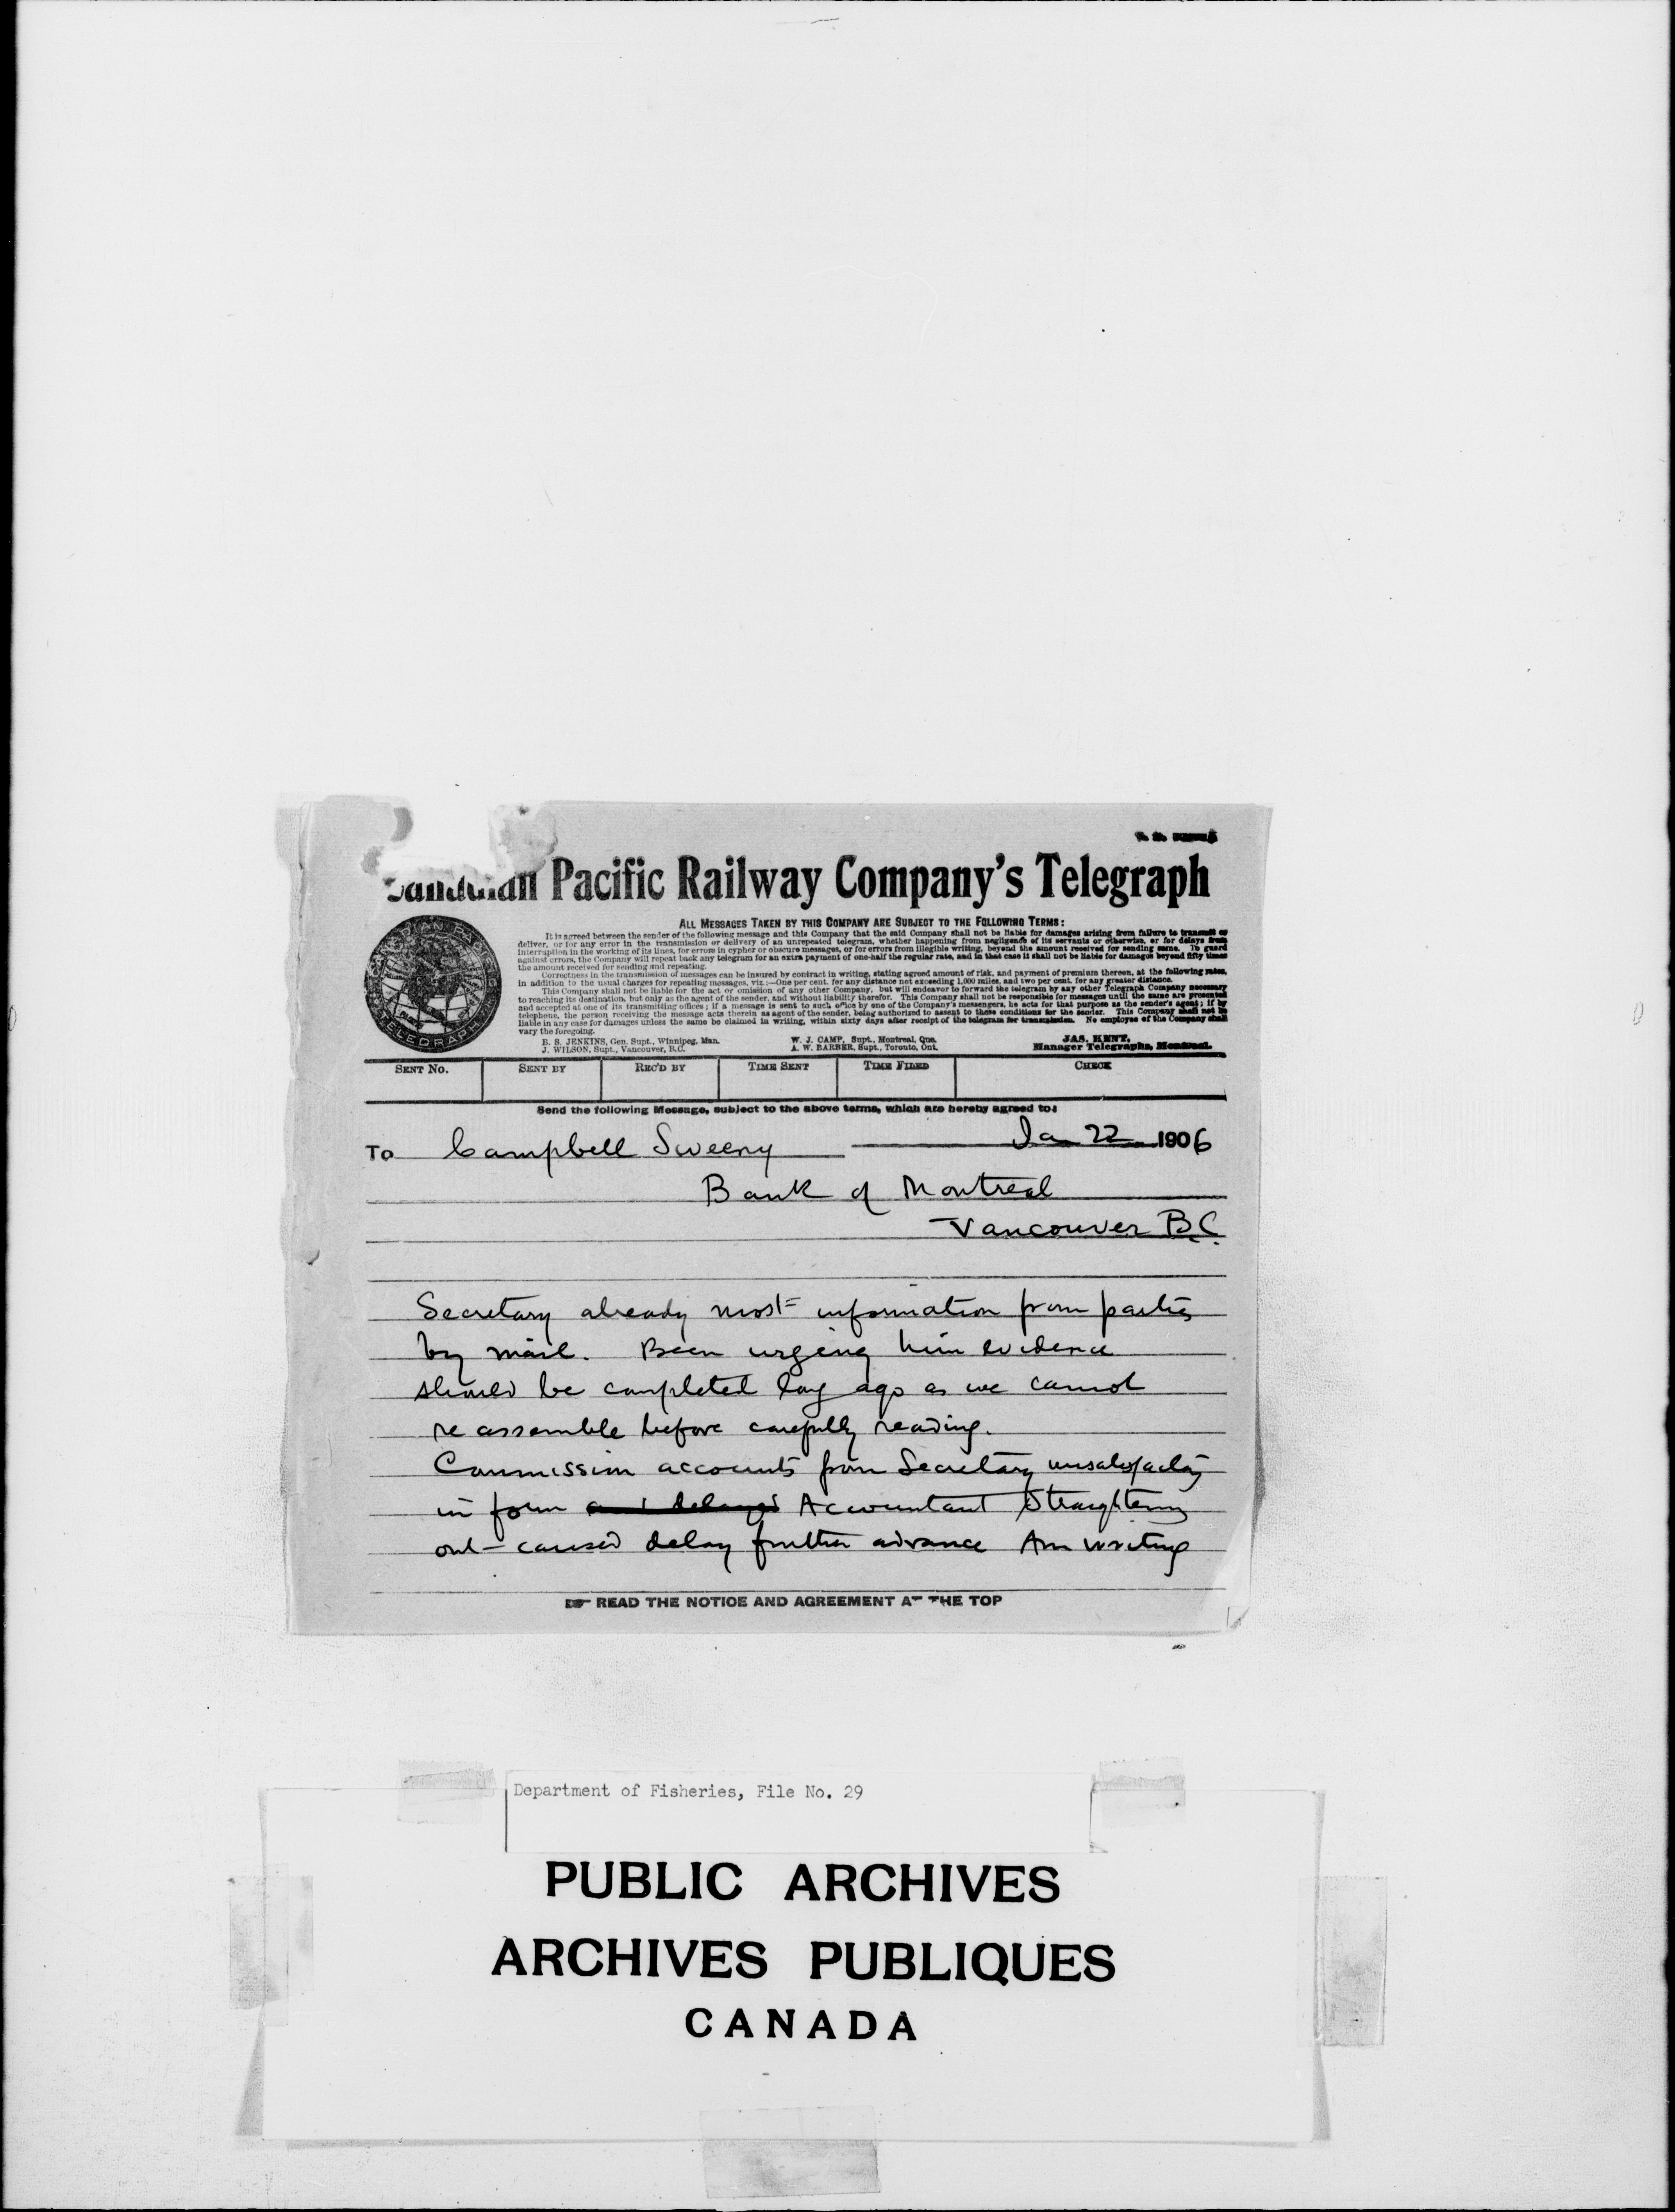 Canadian Pacific Railway Company's Telegraph
ALL MESSAGES TAKEN BY THIS COMPANY ARE SUBJECT TO THE FOLLOWING TERMS:
It is agreed between the sender of the following message and this Company that the said Company shall not be liable for damages arising from failure to transmit or
deliver, or for any error in the transmission or delivery of an unrepeated telegram, whether happening from negligence of its servants or otherwise, or for delays from
interruption in the working of its lines, for errors in cypher or obscure messages, or for errors from illegible writing, beyond the amount received for sending same. To guard
against errors, the Company will repeat back any telegram for an extra payment of one-half the regular rate, and in that case it shall not be liable for damages beyond fifty times
the amount received for sending and repeating.
Correctness in the transmission of messages can be insured by contract in writing, stating agreed amount of risk, and payment of premium thereon, at the following rates,
in addition to the usual charges for repeating messages, viz.:—One per cent. for any distance not exceeding 1,000 miles, and two per cent. for any greater distance.
This Company shall not be liable for the act or omission of any other Company, but will endeavor to forward the telegram by any other Telegraph Company necessary
to reaching its destination, but only as the agent of the sender, and without liability therefor. This Company shall not be responsible for messages until the same are presented
and accepted at one of its transmitting offices; if a message is sent to such office by one of the Company's messengers, he acts for that purpose as the sender's agent; if by
telephone, the person receiving the message acts therein as agent of the sender, being authorized to assent to these conditions for the sender. This Company shall not be
liable in any case for damages unless the same be claimed in writing, within sixty days after receipt of the telegram for transmission. No employee of the Company shall
vary the foregoing.
B. S. JENKINS, Gen. Supt., Winnipeg, Man. W. J. CAMP, Supt., Montreal, Que. JAS. KENT,
J. WILSON, Supt., Vancouver, B.C. A. W. BARBER, Supt., Toronto, Ont. Manager Telegraphs, Montreal.
SENT NO. SENT BY REC'D BY TIME SENT TIME FILED CHECK
Send the following Message, subject to the above terms, which are hereby agreed to:
Ja 22 1906
To Campbell Sweeny
Bank of Montreal
Vancouver B.C.
Secretary already most information from parties
by mail. Been urging him evidence
should be completed long ago as we cannot
re assemble before carefully reading.
Commission accounts from Secretary unsatisfactory
in form and delayed Accountant Straightening
out caused delay further advance Am writing
READ THE NOTICE AND AGREEMENT AT THE TOP
Department of Fisheries, File No. 29
PUBLIC ARCHIVES
ARCHIVES PUBLIQUES
CANADA